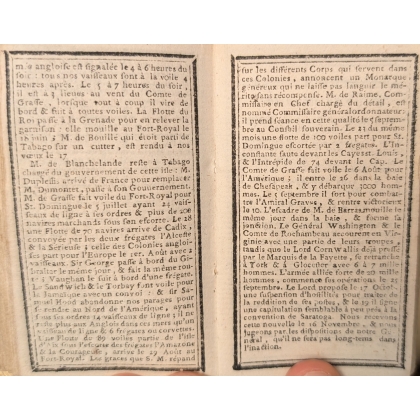 m.e angloise est signalée le 4 à 6 heures du
soir : tous nos vaisseaux font à la voile 4
heures après. Le 5 à 7 heures du soir,
il est à 4 lieues au vent du Comte de
Grasse, lorsque tout à coup il vire de
bord & fuit à toutes voiles. La Flotte du
Roi passe à la Grenade pour en relever la
garnison. - Elle mouille au Fort-Royal le
18 juin; M. de Bouillé qui étoit parti de
Tabago sur un cutter, est rendu à nos
vœux le 17
M. de Blanchelande reste à Tabago
chargé du gouvernement de cette isle : M.
Duplessis arrive de France pour remplacer
M. Dumontet, passe à son Gouvernement.
M. de Grasse fait voile du Fort-Royal pour
St. Domingue le 5 juillet ayant 24 vais-
seaux de ligne à ses ordres & plus de 200
navires marchands sous son escorte. Le 28
une Flotte de 70 navires arrive de Cadix,
convoyée par les deux frégates l'Alceste
& la Sérieuse ; celle des Colonies angloi-
ses part pour l'Europe le 1er. Août avec
vaisseaux. Sir George passe à bord du Gi-
braltar le même jour, & fait la même rou-
te : Vaughan le suit à bord d'une frégate.
Le Sandwich & le Torbay font voile pour
la Jamaïque avec un convoi : & Sir Sa-
muel Hood abandonne nos parages pour
se rendre au Nord de l'Amérique, ayant
sous ses ordres 14 vaisseaux de ligne ; il ne
reste plus aux Anglois dans ces mers qu'un
vaisseau de ligne & 6 frégates ou corvettes.
Une Flotte de 89 voiles partie de l'isle
d'Aix sous l'escorte des frégates l'Amazone
& la Courageuse, arrive le 29 Août au
Fort-Royal. Les graces que S. M. répand
sur les différents Corps qui servent dans
ces Colonies, annoncent un Monarque
généreux qui ne laisse pas languir le mé-
rite sans récompense. M. de Raime, Com-
missaire en Chef chargé du détail, est
nommé Commissaire général ordonnateur:
il prend séance en cette qualité le 5 septem-
bre au Conseil souverain. Le 21 du même
mois une flotte de 100 voiles part pour St.
Domingue escortée par 2 frégates. L'In-
constante saute devant les Cayes. Louis,
& l'Intrépide de 74 devant le Cap. Le
Comte de Grasse fait voile le 6 Août pour
l'Amérique ; il entre le 26 dans la baie
de Chesapeak, & y débarque 3000 hom-
mes. Le 5 septembre il sort pour combat-
tre l'Amiral Graves, & rentre victorieux
le 10. L'escadre de M. de Barras mouille le
même jour dans la baie, & forme sa
jonction. Le Général Washington & le
Comte de Rochambeau accourent en Vir-
ginie avec une partie de leurs troupes ;
tandis que le Lord Cornwallis déjà pressé
par le Marquis de la Fayette, se retranche
à York & à Glouceter avec 6 à 7 mille
hommes. L'armée alliée forte de 22 mille
hommes, commence ses opérations le 29
septembre. Le Lord propose le 17 Octob.
une suspension d'hostilités pour traiter de
la reddition de ses postes, & le 19 il signe
une capitulation semblable à peu près à la
convention de Saratoga. Nous recevons
cette nouvelle le 16 Novembre, & nous
jugeons par les dispositions de notre Gé-
néral, qu'il ne sera pas long-tems dans
l'inaction.